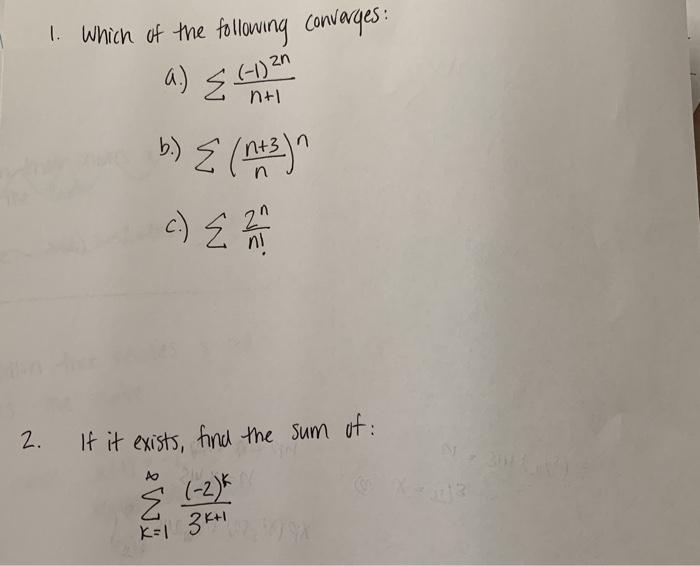 1. Which of the following converges:
a.) Σ (-1)^2n / n+1
b.) Σ (n+3 / n)^n
c.) Σ 2^n / n!
2. If it exists, find the sum of:
∞ Σ k=1 (-2)^k / 3^k+1